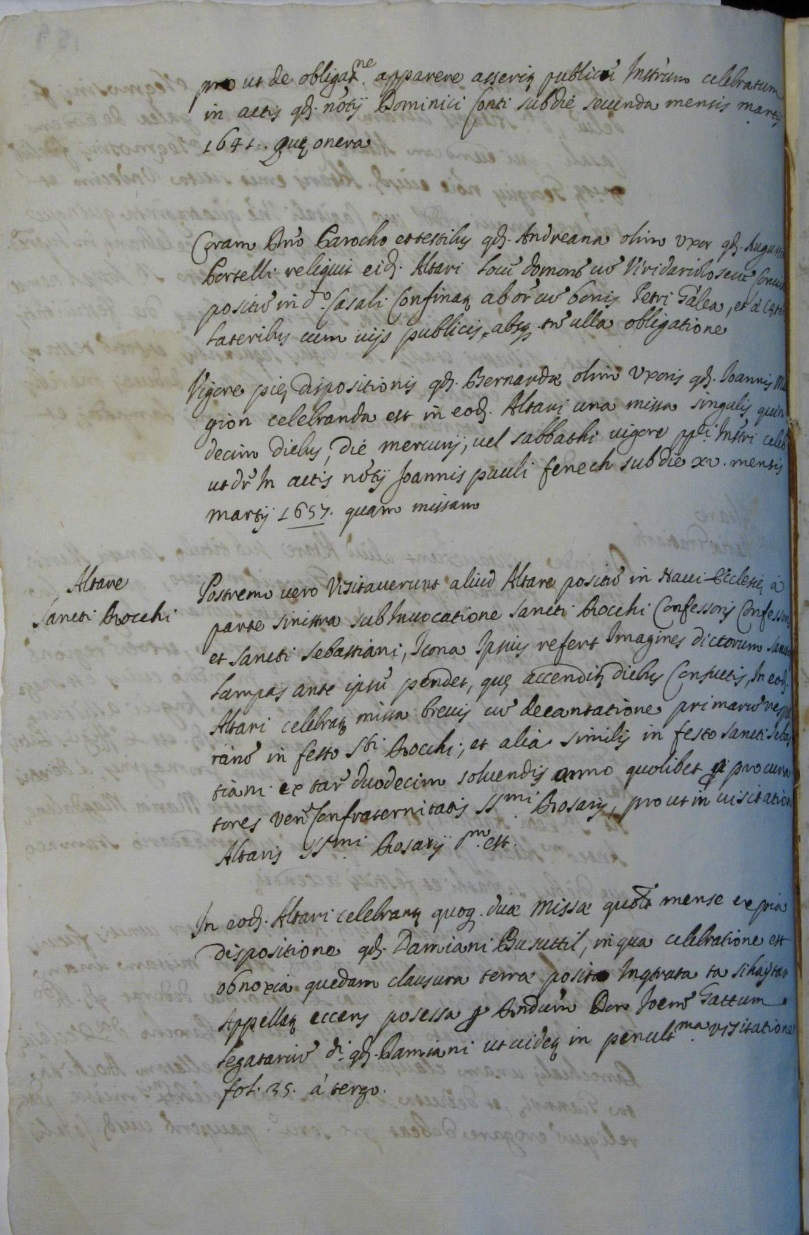 pro ut de obligat.ne apparere asseriť publici Instrum celebratum
in actis qď. nőtij Dominici sub die secunda mensis martij
1641. que onera
Coram Dño Parocho et testibus qď. Andreana olim uxor qď.
Portelli reliquit eiď. Altari locũ domorũ cũ Viridario
positũ in d.o Casali cũ bonis Petri Galea, et a
lateribus cum vijs publicis, absq tñ ulla obligatione
Vigore pie dispositionis qď. Bernardæ olim Vxoris qď. Ioannis
gion celebranda est in eoď. Altari una missa singulis quin
decim diebus, die mercurij, vel sabbathi vigore
ut dř In actis nőtij Joannis pauli fenech sub die xv. mensis
martij 1657. quam missam
Altare
Sancti Rocchi
Postremo vero Visitaverunt aliud Altare positũ in Navi Ecclesie à
parte sinistra sub Invocatione Sancti Rocchi Confessoris
et Sancti Sebastiani, Icona Ipsius refert Imagines dictorum
Lampas ante ipsũ pendet, que accenditř diebus Consuetis, In eoď.
Altari celebratř missa brevis cũ decantatione primarũ vespe
rarũ in festo Sti Rocchi, et alia similis in festo Sancti Sebas
tiani ex tar duodecim soluendis anno quolibet procura
tores veñ Confraternitatis SSmi Rosarij, pro ut in visitation
Altaris SSmi Rosarij est.
In eoď. Altari celebrantř quoq. duæ Missæ quolt mense ex pia
dispositione qď. Damiani Busuttil, in qua celebratione est
obnoxia quedam clausura terræ posita
Appellatř possessa Don Ioem Gattum
legatariũ di qď. Damiani ut videtř in penultma visitatione
fol. 35. à tergo.